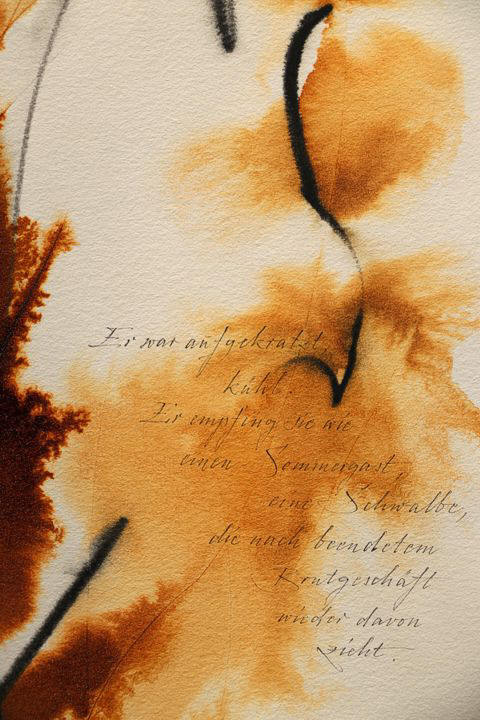 Er war aufgekratzt,
kühl.
Er empfing sie wie
einen Sommergast,
eine Schwalbe,
die nach beendetem
Brutgeschäft
wieder davon
zieht.